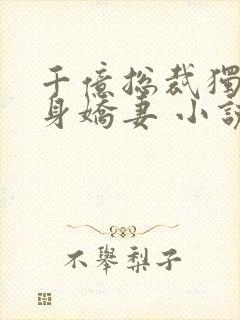 千億总裁獨
身嬌妻 小説
不舉梨子